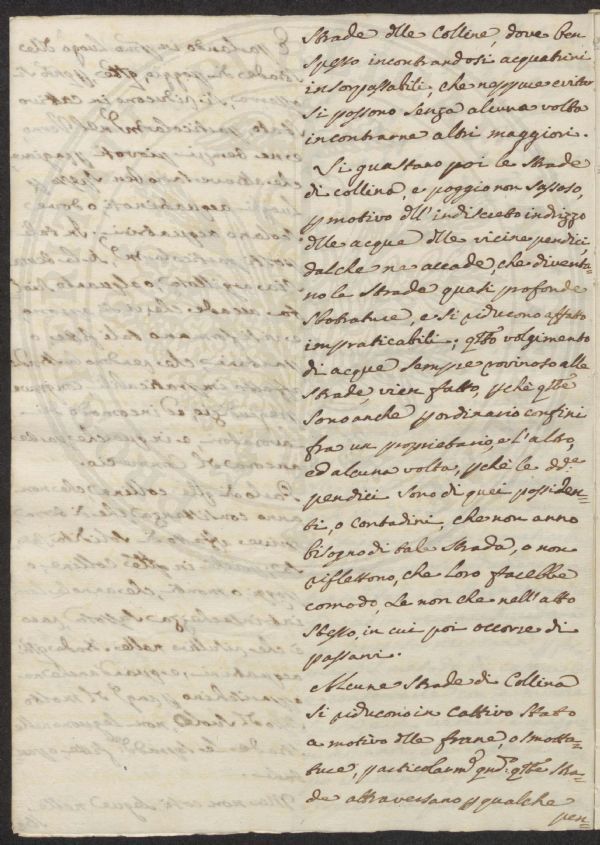 Strade dlle Colline, dove ben
spesso incontrandosi acquatrini
insorpassabili, che neppure evitar
si possono senza alcuna volta
incontrarne altri maggiori.
Si guastano poi le strade
di collina, e poggio non sassoso,
p motivo dll'indiscreto indrizzo
dlle acque dlle vicine pendici,
dalche ne accade, che divente-
no le strade quasi profonde
sbotrature, e si riducono affato
impraticabili; qsto volgimento
di acque sempre rovinoso alle
strade, vien fatto, pchè qste
sono anche p ordinario confini
fra un proprietario, e l'altro,
ed alcuna volta, pchè le dde
pendici sono di quei possiden-
ti, o contadini, che non anno
bisogno di tale strada, o non
riflettono, che loro farebbe
comodo, se non che nell'atto
stesso, in cui poi occorre di
passarvi.
Alcune strade di Collina
si riducono in cattivo stato
a motivo dlle frane, o smotta-
ture, particolarme qndo qste stra-
de attraversano p qualche
pen-